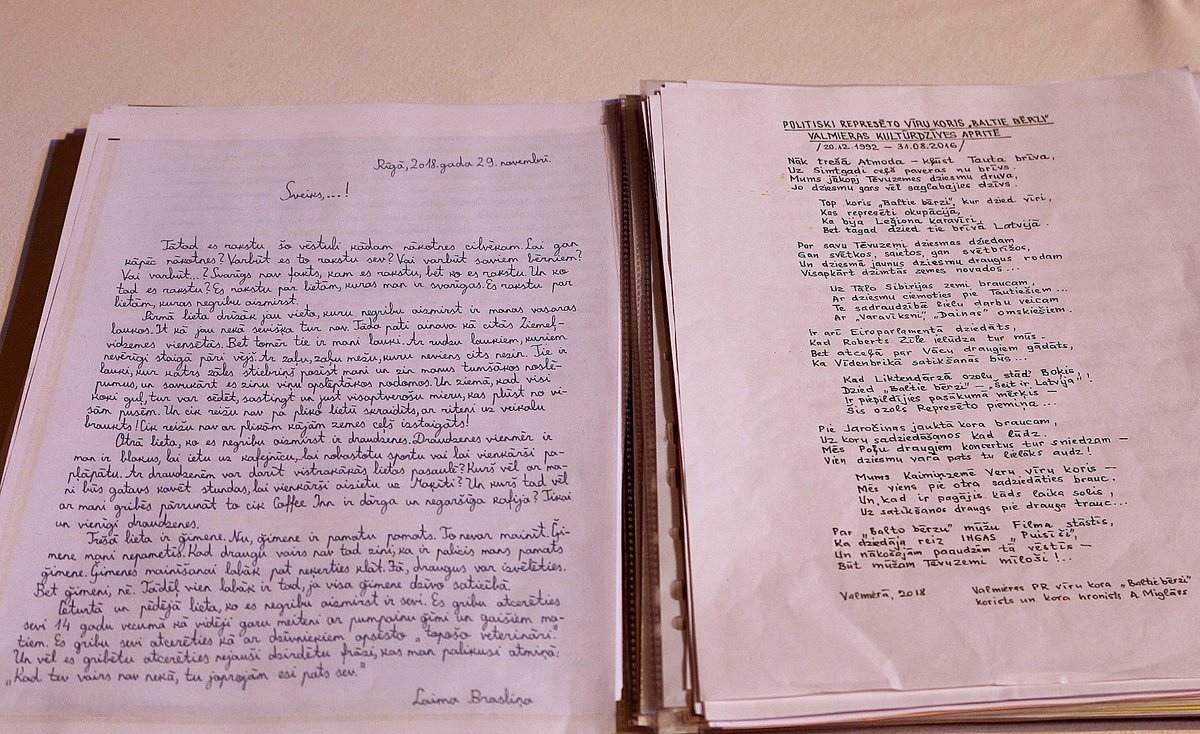 Rīgā, 2018. gada 29. novembrī.
Sveiks,...!
Tātad es rakstu šo vēstuli kādam nākotnes cilvēkam. Lai gan
kāpēc nākotnes? Varbūt es to rakstu sev? Vai varbūt saviem bērniem?
Vai varbūt...? Svarīgs nav fakts, kam es rakstu, bet ko es rakstu. Un ko
tad es rakstu? Es rakstu par lietām, kuras man ir svarīgas. Es rakstu par
lietām, kuras negribu aizmirst.
Pirmā lieta drīzāk jau vieta, kuru negribu aizmirst ir manas vasaras
laukos. It kā jau nekā sevišķa tur nav. Tāda pati ainava kā citās Ziemeļ-
vidzemes viensētās. Bet tomēr tie ir mani lauki. Ar rudzu laukiem, kuriem
nevērīgi staigā pāri vēji. Ar zaļu, zaļu mežu, kuru neviens cits nezin. Tie ir
lauki, kur katrs zāles stiebriņš pazīst mani un zin manus tumšākos noslē-
pumus, un savukārt es zinu viņu apslēptākos nodomus. Un ziemā, kad visi
koki guļ, tur var sēdēt, sastingt un just visaptverošu mieru, kas plūst no vi-
sām pusēm. Un cik reižu nav pa pliko lietū skraidīts, ar riteni uz veikalu
braukts! Cik reižu nav ar plikām kājām zemes ceļš izstaigāts!
Otrā lieta, ko es negribu aizmirst ir draudzenes. Draudzenes vienmēr ir
man ir blakus, lai ietu uz kafejnīcu, lai nobastotu sportu vai lai vienkārši pa-
pļāpātu. Ar draudzenēm var darīt vistrakākās lietas pasaulē? Kurš vēl ar ma-
ni būs gatavs kavēt stundas, lai vienkārši aizietu uz Maķīti? Un kurš tad vēl
ar mani gribēs pārrunāt to cik Coffee Inn ir dārga un negaršīga kafija? Tikai
un vienīgi draudzenes.
Trešā lieta ir ģimene. Nu, ģimene ir pamatu pamats. To nevar mainīt. Ģi-
mene mani nepametīs. Kad draugu vairs nav tad zini, ka ir palicis mans pamats
ģimene. Ģimenes mainīšanai labāk pat neķerties klāt. Jā, draugus var izvēlēties.
Bet ģimeni, nē. Tādēļ vien labāk ir tad, ja visa ģimene dzīvo saticībā.
Ceturtā un pēdējā lieta, ko es negribu aizmirst ir sevi. Es gribu atcerēties
sevi 14 gadu vecumā kā vidēji garu meiteni ar pumpainu ģīmi un gaišiem ma-
tiem. Es gribu sevi atcerēties kā ar dzīvniekiem apsēsto „topošo veterināri."
Un vēl es gribētu atcerēties nejauši dzirdētu frāzi, kas man palikusi atmiņā:
„Kad tev vairs nav nekā, tu joprojām esi pats sev."
Laima Brasliņa
POLITISKI REPRESĒTO VĪRU KORIS „BALTIE BĒRZI"
VALMIERAS KULTŪRDZĪVES APRITĒ
/20.12.1992 – 31.08.2016/
Nāk trešā Atmoda – kļūst Tauta brīva,
Uz Simtgadi ceļš paveras nu brīvs.
Mums jākopj Tēvuzemes dziesmu druva,
Jo dziesmu gars vēl saglabājies dzīvs.
Top koris „Baltie bērzi", kur dzied vīri,
Kas represēti okupācijā,
Ka bija Leģiona karavīri,
Bet tagad dzied tie brīvā Latvijā.
Par savu Tēvuzemi dziesmas dziedam
Gan svētkos, saietos, gan svētbrīžos,
Un dziesmā jaunus dziesmu draugus rodam
Visapkārt dzimtās zemes novados...
Uz Tālo Sibīrijas zemi braucam,
Ar dziesmu ciemoties pie Tautiešiem...
Te sadraudzībā lielu darbu veicam
Ar „Varavīksni", „Dainas" omskiešiem.
Ir arī Eiroparlamentā dziedāts,
Kad Roberts Zīle ielūdza tur mūs...
Bet atceļā par Vācu draugiem gādāts,
Ka Vīdenbrikā satikšanās būs...
Kad Likteņdārzā ozolu stād' Boķis,
Dzied „Baltie bērzi" – „Šeit ir Latvija"!
Ir piepildījies pasākumā mērķis –
Šis ozols Represēto piemiņa...
Pie Jaročinas jauktā kora braucam,
Uz koru sadziedāšanos kad lūdz.
Mēs Poļu draugiem koncertus tur sniedzam –
Vien dziesmu vara pats tu lielāks audz!
Mums Kaimiņzemē Veru vīru koris –
Mēs viens pie otra sadziedāties brauc.
Un kad ir pagājis kāds laika solis,
Uz satikšanos draugs pie drauga trauc...
Par „Balto bērzu" mūžu Filma stāstīs,
Ka dziedāja reiz INGAS „Puisīši",
Un nākošajām paaudzēm tā vēstīs –
Būt mūžam Tēvuzemi mīloši!...
Valmierā, 2018
Valmieras PR vīru kora „Baltie bērzi"
korists un kora hronists A. Miglāvs